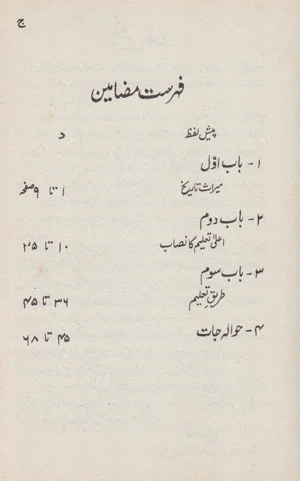 ج
فہرست مضامین
پیش لفظ د
۱- باب اوّل
میراث تاریخ ۱ تا ۹ صفحہ
۲- باب دوم
اعلیٰ تعلیم کا نصاب ۱۰ تا ۳۵
۳- باب سوم
طریق تعلیم ۳۶ تا ۴۵
۴- حوالہ جات ۴۵ تا ۶۸